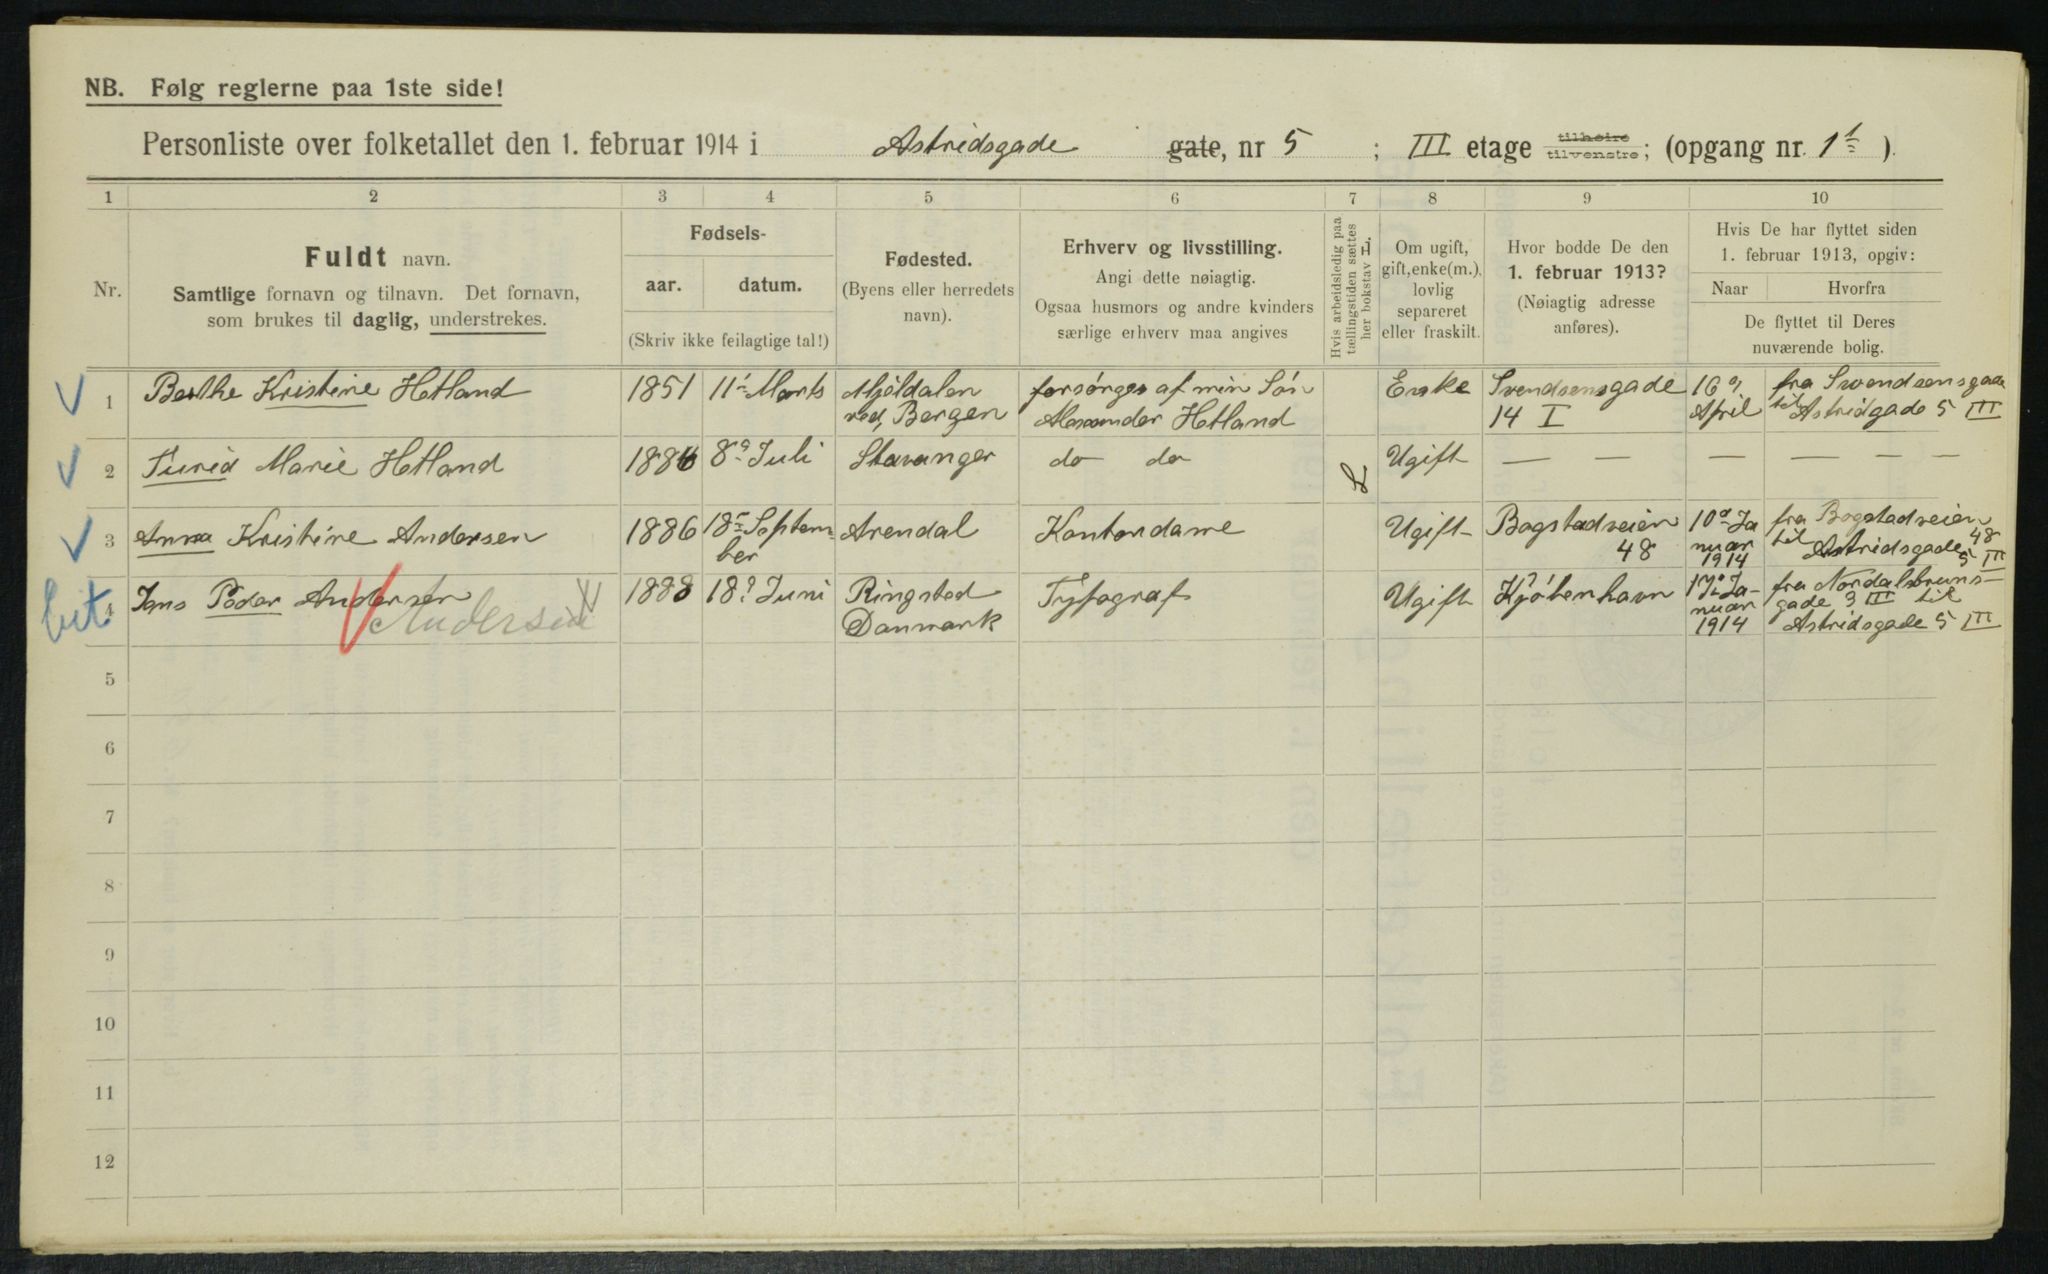 NB. Følg reglerne paa 1ste side!
Personliste over folketallet den 1. februar 1914 i Astridsgade gate, nr 5 ; III etage tilhøire tilvenstre; (opgang nr. 1 ).
1 2 3 4 5 6 7 8 9 10
Nr.
Fuldt navn.
Samtlige fornavn og tilnavn. Det fornavn,
som brukes til daglig, understrekes.
Fødsels-
aar. datum.
(Skriv ikke feilagtige tal!)
Fødested.
(Byens eller herredets
navn).
Erhverv og livsstilling.
Angi dette nøiagtig.
Ogsaa husmors og andre kvinders
særlige erhverv maa angives
Hvis arbeidsledig paa
tællingstiden sættes
her bokstav L.
Om ugift,
gift, enke(m.),
lovlig
separeret
eller fraskilt.
Hvor bodde De den
1. februar 1913?
(Nøiagtig adresse
anføres).
Hvis De har flyttet siden
1. februar 1913, opgiv:
Naar Hvorfra
De flyttet til Deres
nuværende bolig.
1 Berthe Kristine Hetland 1851 11 Marts Mjöldalen ved Bergen forsörges af min Sön Alexander Hetland Enke Svendsensgade 14 I 16 April fra Svendsensgade til Astridgade 5 III
2 Turid Marie Hetland 1886 8 Juli Stavanger do do Ugift — — — — — —
3 Anna Kristine Andersen 1886 18 September Arendal Kontordame Ugift Bogstadveien 48 10 Januar 1914 fra Bogstadveien 48 til Astridsgade 5 III
4 Jens Peder Andersen Andersen 1888 18 Juni Ringsted Danmark Typograf Ugift Kjöbenhavn 17 Januar 1914 fra Nordalsbrunsgade 3 III til Astridsgade 5 III
5
6
7
8
9
10
11
12